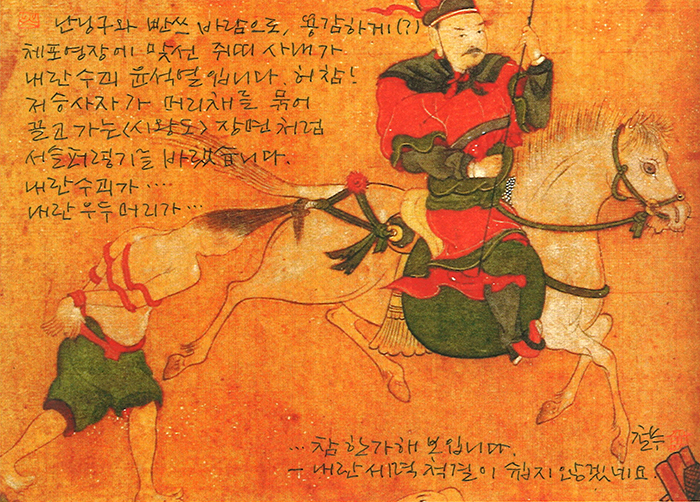 난닝구와 빤쓰 바람으로, 용감하게(?)
체포영장에 맞선 쥐띠 사내가
내란수괴 윤석열입니다. 허참!
저승사자가 머리채를 묶어
끌고가는 <시왕도> 장면처럼
서슬퍼렇기를 바랬습니다.
내란수괴가 ....
내란우두머리가 ...
... 참 한가해 보입니다.
- 내란세력 척결이 쉽지 않겠네요.
철수